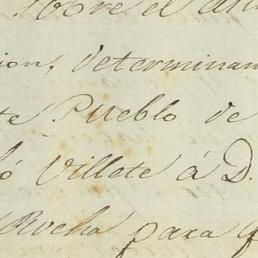 sobre el
ion, determinan
te Pueblo de
ó Villete á D.
Rocha para